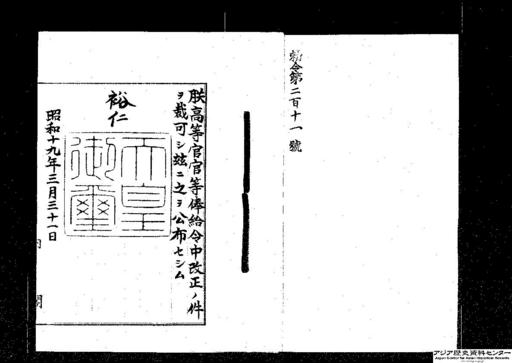 勅令第二百十一號
朕高等官官等俸給令中改正ノ件
ヲ裁可シ玆ニ之ヲ公布セシム
裕仁
天皇御璽
昭和十九年三月三十一日
内閣
アジア歴史資料センター
Japan Center for Asian Historical Records